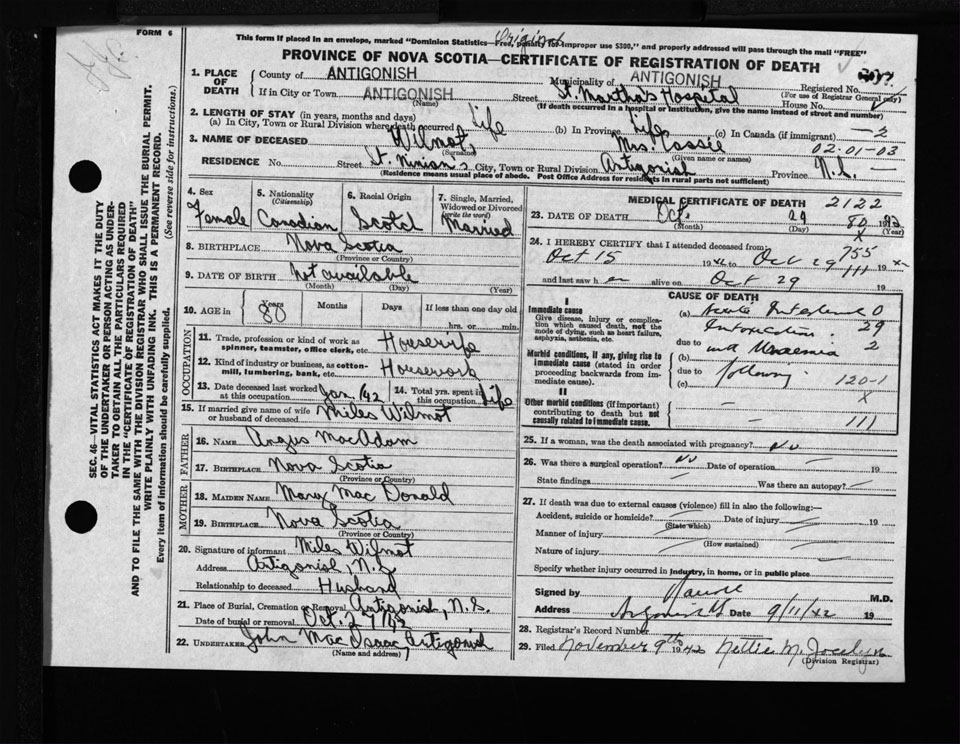 FORM 6
Original
This form if placed in an envelope, marked "Dominion Statistics—Free, penalty for improper use $300," and properly addressed will pass through the mail "FREE"
PROVINCE OF NOVA SCOTIA—CERTIFICATE OF REGISTRATION OF DEATH
1. PLACE OF DEATH
County of ANTIGONISH Municipality of ANTIGONISH Registered No.
(For use of Registrar General only)
If in City or Town ANTIGONISH Street St. Martha's Hospital House No.
(Name) (If death occurred in a hospital or institution, give the name instead of street and number)
2. LENGTH OF STAY (in years, months and days)
(a) In City, Town or Rural Division where death occurred Life (b) In Province Life (c) In Canada (if immigrant) — 2
3. NAME OF DECEASED Wilmot, Mrs Cassie 02-01-03
(Surname) (Given name or names)
RESIDENCE No. Street St. Ninian's City, Town or Rural Division Antigonish Province N.S. —
(Residence means usual place of abode. Post Office Address for residents in rural parts not sufficient)
4. Sex Female
5. Nationality (Citizenship) Canadian
6. Racial Origin Scotch
7. Single, Married, Widowed or Divorced (write the word) Married
8. BIRTHPLACE Nova Scotia
(Province or Country)
9. DATE OF BIRTH Not available
(Month) (Day) (Year)
10. AGE in Years 80 Months Days If less than one day old
hrs. or min.
OCCUPATION
11. Trade, profession or kind of work as spinner, teamster, office clerk, etc. Housewife
12. Kind of industry or business, as cotton-mill, lumbering, bank, etc. Housework
13. Date deceased last worked at this occupation Jan /42
14. Total yrs. spent in this occupation Life
15. If married give name of wife or husband of deceased Miles Wilmot
FATHER
16. NAME Angus MacAdam
17. BIRTHPLACE Nova Scotia
(Province or Country)
MOTHER
18. MAIDEN NAME Mary MacDonald
19. BIRTHPLACE Nova Scotia
(Province or Country)
20. Signature of informant Miles Wilmot
Address Antigonish, N.S.
Relationship to deceased Husband
21. Place of Burial, Cremation or Removal Antigonish, N.S.
Date of burial or removal Oct. /42
22. UNDERTAKER John MacIsaac, Antigonish
(Name and address)
MEDICAL CERTIFICATE OF DEATH 2122
23. DATE OF DEATH Oct. 29 80
(Month) (Day) (Year)
X
24. I HEREBY CERTIFY that I attended deceased from: 755
Oct 15 1942 to Oct 29 111 19 42
and last saw h er alive on Oct 29
CAUSE OF DEATH
I
Immediate cause
Give disease, injury or complication which caused death, not the mode of dying, such as heart failure, asphyxia, asthenia, etc.
(a) Acute Intestinal 0
Intoxication 29
due to with Uraemia 2
Morbid conditions, if any, giving rise to immediate cause (stated in order proceeding backwards from immediate cause).
(b)
due to following
(c) 120-1
II
X
Other morbid conditions (if important) contributing to death but not causally related to immediate cause. —
— 111
25. If a woman, was the death associated with pregnancy? No
26. Was there a surgical operation? No Date of operation — 19
State findings — Was there an autopsy? —
27. If death was due to external causes (violence) fill in also the following:—
Accident, suicide or homicide? Date of injury 19
(State which)
Manner of injury
(How sustained)
Nature of injury
Specify whether injury occurred in industry, in home, or in public place
Signed by M.D.
Address Antigonish Date 9/11/42 19
28. Registrar's Record Number
29. Filed November 9th 1942 Nettie M. Jocelyn
(Division Registrar)
SEC. 46—VITAL STATISTICS ACT MAKES IT THE DUTY
OF THE UNDERTAKER OR PERSON ACTING AS UNDER-
TAKER TO OBTAIN ALL THE PARTICULARS REQUIRED
IN THE "CERTIFICATE OF REGISTRATION OF DEATH"
AND TO FILE THE SAME WITH THE DIVISION REGISTRAR WHO SHALL ISSUE THE BURIAL PERMIT.
WRITE PLAINLY WITH UNFADING INK. THIS IS A PERMANENT RECORD.
Every item of information should be carefully supplied. (See reverse side for instructions.)